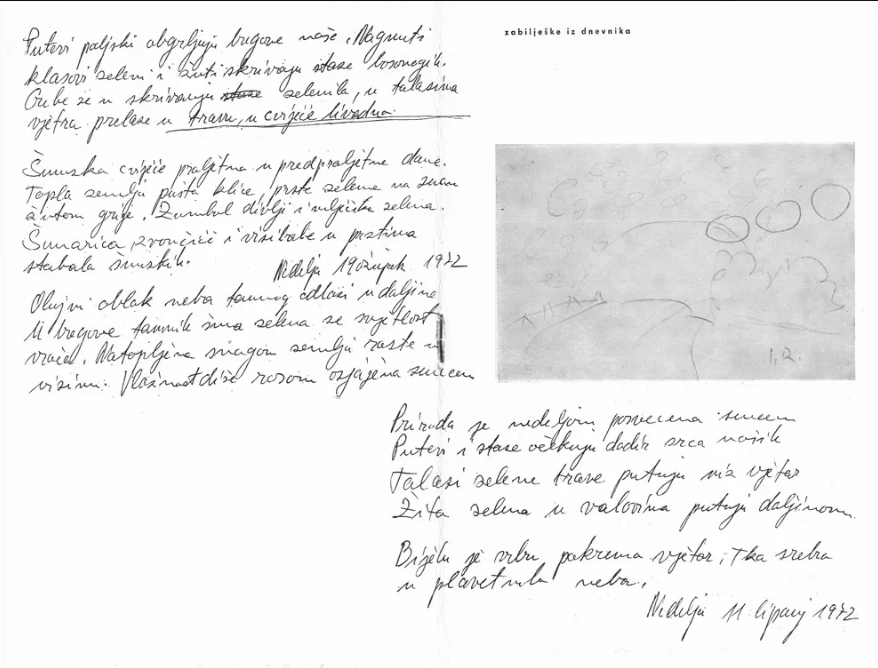 Putevi poljski obgrljuju bregove naše. Nagnuti
klasovi zeleni i žuti skrivaju staze bosonogih.
Gube se u skrivanju staze zelenila, u talasima
vjetra prelaze u travu, u cvijeće livadno.
Šumska cvijeće proljetna u predproljetne dane.
Topla zemlja pušta klice, prste zelene na suncu
žutom grije. Zumbul divlji i veljača zelena.
Šumarica, zvončići i visibabe u prstima
stabala šumskih.
Nedelja 19 ožujak 1972
Olujni oblak neba tamnog odlazi u daljine
U bregove tamnih šuma zelena se svjetlost
vraća. Natopljena snagom zemlja raste u
visinu. Vlažnost diše rosom osjajena suncem
zabilješke iz dnevnika
I.R.
Priroda je nedeljom posvećena suncem
Putevi i staze očekuju dodir srca naših
Talasi zelene trave putuju niz vjetar
Žita zelena u valovima putuju daljinom.
Bijelu je vrbu pokrenuo vjetar, tka srebro
u plavetnilu neba.
Nedelja 11 lipanj 1972